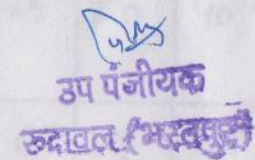 उप पंजीयक
रूदावल (भरतपुर)